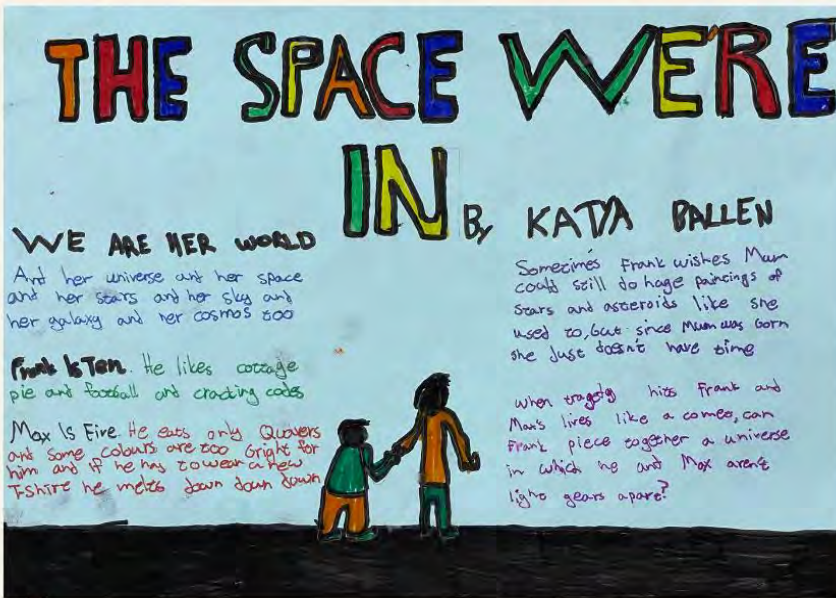 THE SPACE WE'RE
IN By KATYA BALLEN
WE ARE HER WORLD
And her universe and her space
and her stars and her sky and
her galaxy and her cosmos too
Frank Is Ten. He likes cottage
pie and football and cracking codes
Max Is Five. He eats only Quavers
and some colours are too bright for
him and if he has to wear a new
T-shirt he melts down down down
Sometimes Frank wishes Mum
could still do huge paintings of
stars and asteroids like she
used to, but since Mum was born
she Just doesn't have time
When tragedy hits Frank and
Max's lives like a comet, can
Frank piece together a universe
in which he and Max aren't
light years apart?